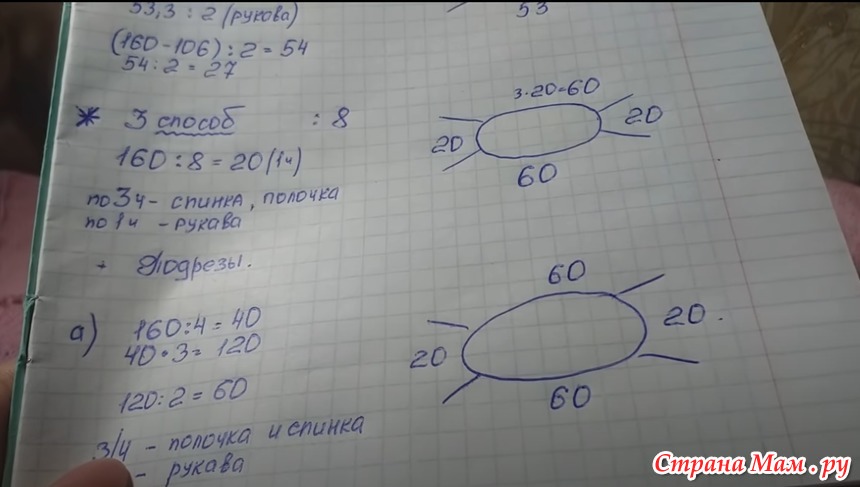 53,3 : 2 (рукова)
53
(160-106) : 2 = 54
54 : 2 = 27
* 3 способ : 8
160 : 8 = 20 (1ч)
по 3ч - спинка, полочка
по 1ч - рукава
+ Подрезы.
3·20=60
20
20
60
а) 160:4 = 40
40·3 = 120
120:2 = 60
3/4 - полочка и спинка
- рукава
60
20
20.
60
Страна Мам.ру